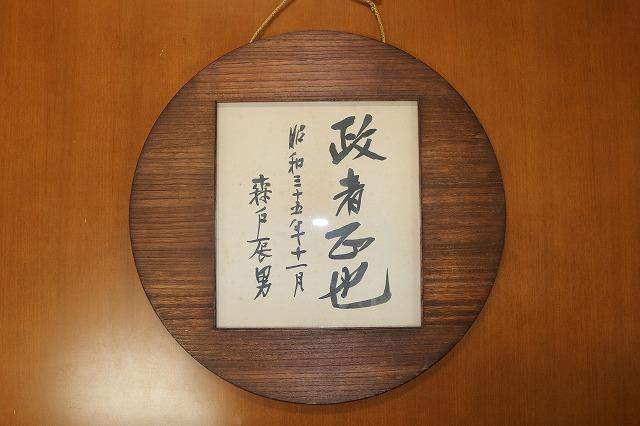 政者正也
昭和三十五年十一月
森戸辰男